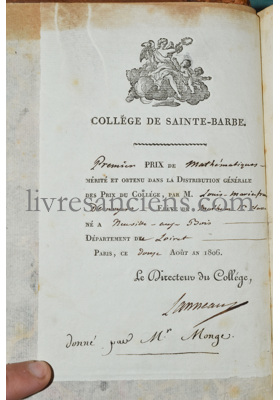 COLLÈGE DE SAINTE-BARBE.
Premier PRIX DE Mathématiques
MÉRITÉ ET OBTENU DANS LA DISTRIBUTION GÉNÉRALE
DES PRIX DU COLLÉGE, PAR M. Louis-Marie
livresanciens.com
NÉ A Neuville-aux-Bois
DÉPARTEMENT DU Loiret
PARIS, CE douze AOÛT AN 1806.
Le Directeur du Collége,
Lanneau
donné par Mr Monge.